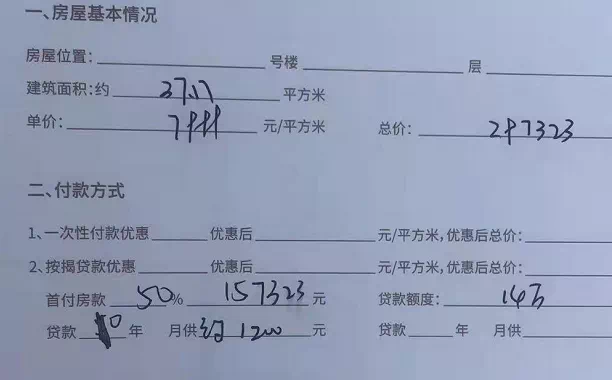 一、房屋基本情况
房屋位置：________号楼________层
建筑面积：约 37.17 平方米
单价： 7999 元/平方米 总价： 297323
二、付款方式
1、一次性付款优惠____优惠后________元/平方米，优惠后总价：____
2、按揭贷款优惠____优惠后________元/平方米，优惠后总价：____
首付房款 50% 157323 元 贷款额度： 14万
贷款 年 月供 约1200 元 贷款____年 月供____